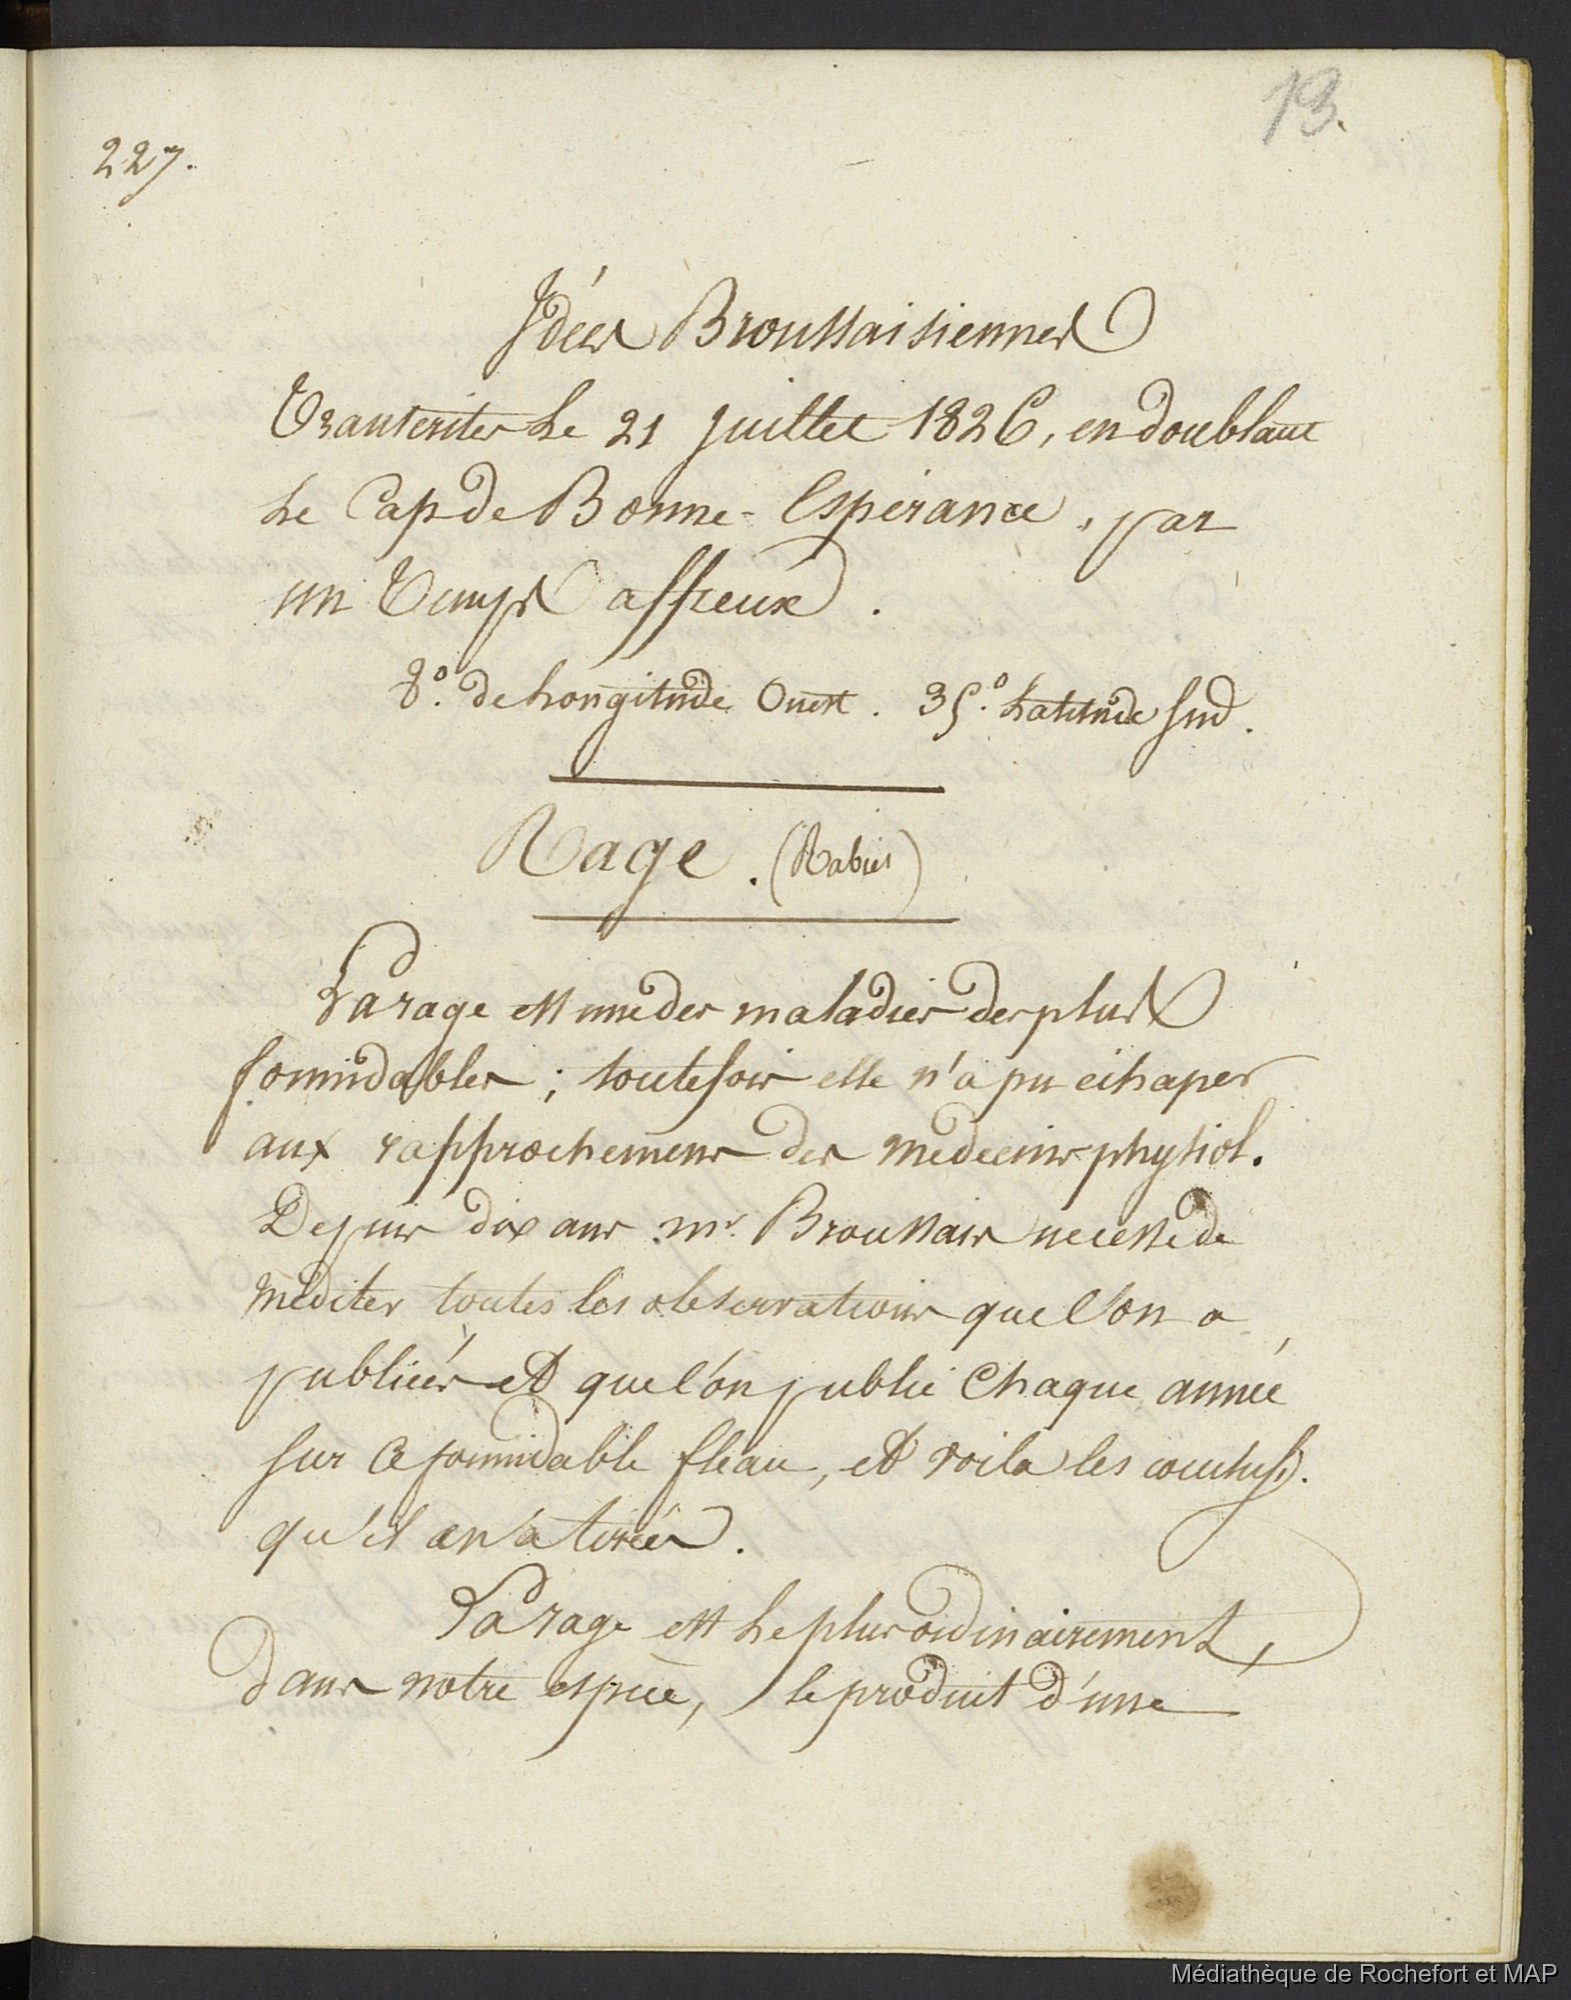 13.
227.
Idées Broussaisiennes
Transcrites Le 21 Juillet 1826, en doublant
Le Cap de Bonne-Esperance, par
un Temps affreux.
8°. de Longitude Ouest. 35°. Latitude Sud.
Rage. (Rabies)
La rage est une des maladies des plus
formidables ; toutefois elle n'a pu échaper
aux rapprochemens des médecins physiol.
Depuis dix ans mr. Broussais ne cesse de
méditer toutes les observations que l'on a
publiées et que l'on publie chaque année
sur ce formidable fléau, et voila les conclus.
qu'il en a tirées.
La rage est Le plus ordinairement,
dans notre espèce, le produit d'une
Médiathèque de Rochefort et MAP